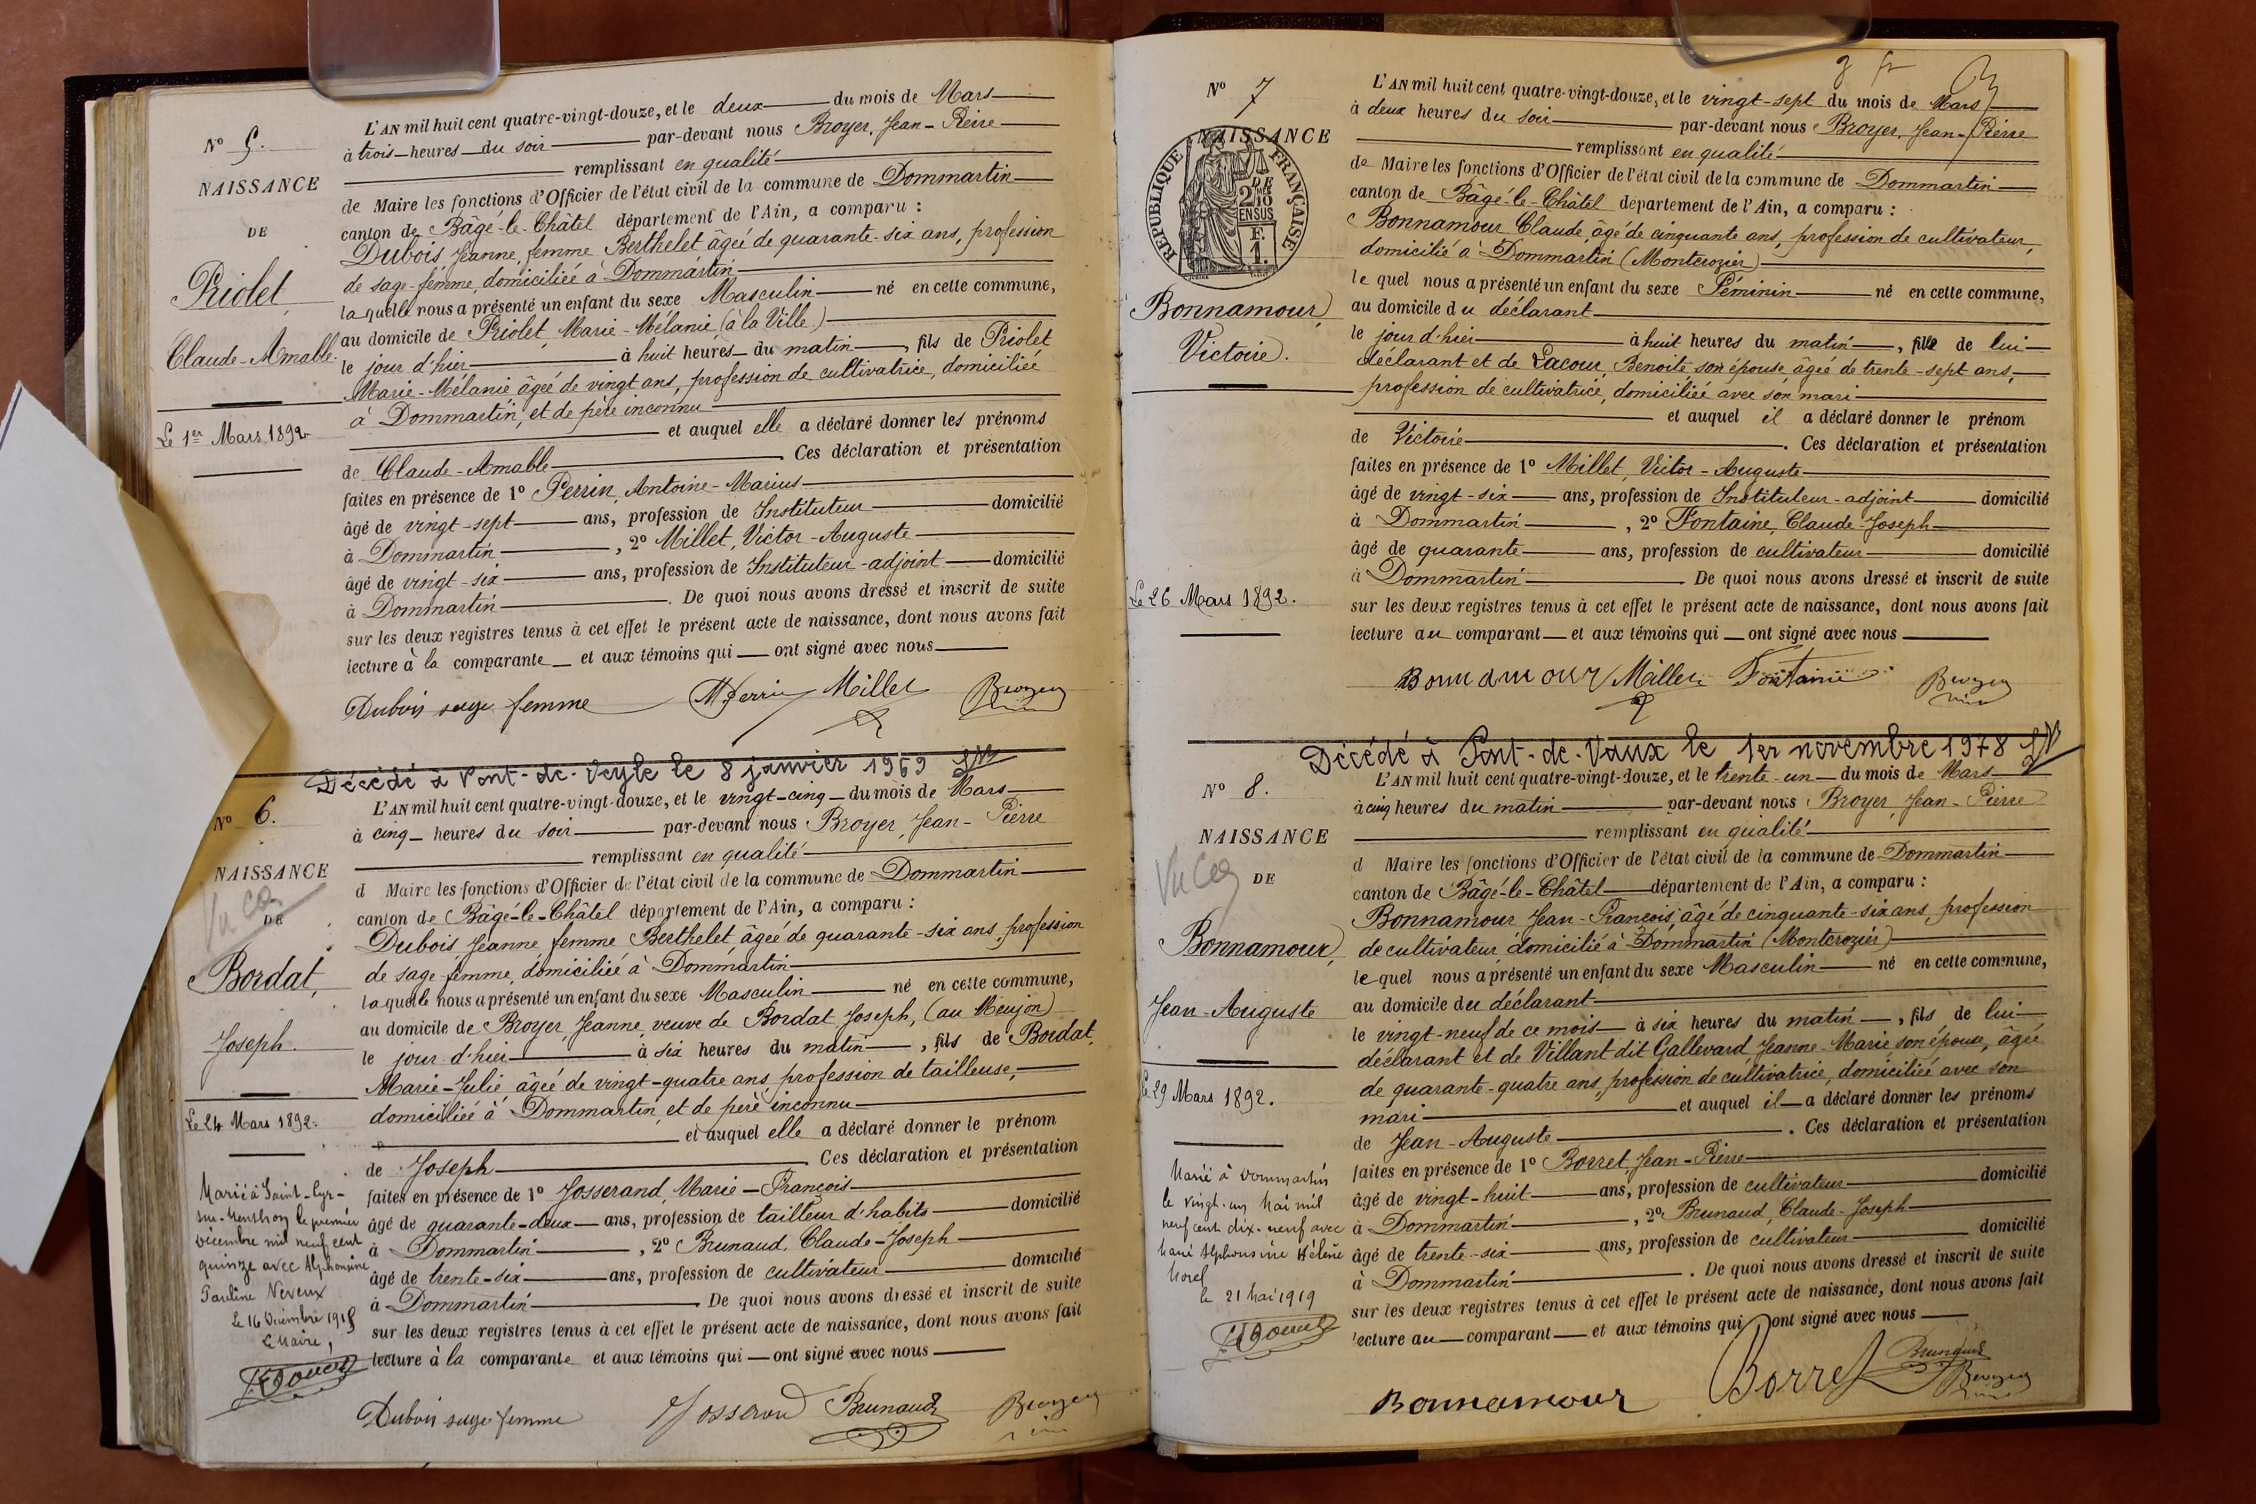 N° 5.
NAISSANCE
DE
Priolet,
Claude-Amable.
Le 1er Mars 1892.
L'AN mil huit cent quatre-vingt-douze, et le deux du mois de Mars
à trois heures du soir par-devant nous Broyer, Jean-Pierre
remplissant en qualité
de Maire les fonctions d'Officier de l'état civil de la commune de Dommartin
canton de Bâgé-le-Châtel département de l'Ain, a comparu :
Dubois Jeanne, femme Berthelet âgée de quarante-six ans, profession
de sage-femme, domiciliée à Dommartin
laquelle nous a présenté un enfant du sexe Masculin né en cette commune,
au domicile de Priolet, Marie-Mélanie (à la Ville)
le jour d'hier à huit heures du matin, fils de Priolet
Marie-Mélanie âgée de vingt ans, profession de cultivatrice, domiciliée
à Dommartin, et de père inconnu
et auquel elle a déclaré donner les prénoms
de Claude-Amable. Ces déclaration et présentation
faites en présence de 1° Perrin, Antoine-Marius
âgé de vingt-sept ans, profession de Instituteur domicilié
à Dommartin, 2° Millet, Victor-Auguste
âgé de vingt-six ans, profession de Instituteur-adjoint domicilié
à Dommartin. De quoi nous avons dressé et inscrit de suite
sur les deux registres tenus à cet effet le présent acte de naissance, dont nous avons fait
lecture à la comparante et aux témoins qui ont signé avec nous
Dubois sage femme MPerrin Millet Broyer
Décédé à Pont-de-Veyle le 8 janvier 1969
N° 6.
NAISSANCE
DE
Vu
Bordat,
Joseph.
Le 24 Mars 1892.
Marié à Saint-Cyr-
sur-Menthon le premier
décembre mil neuf cent
quinze avec Alphonsine
Pauline Neveux
Le 16 Décembre 1915
Le Maire,
L'AN mil huit cent quatre-vingt-douze, et le vingt-cinq du mois de Mars
à cinq heures du soir par-devant nous Broyer, Jean-Pierre
remplissant en qualité
d Maire les fonctions d'Officier de l'état civil de la commune de Dommartin
canton de Bâgé-le-Châtel département de l'Ain, a comparu :
Dubois, Jeanne femme Berthelet âgée de quarante-six ans, profession
de sage-femme, domiciliée à Dommartin
laquelle nous a présenté un enfant du sexe Masculin né en cette commune,
au domicile de Broyer, Jeanne, veuve de Bordat Joseph, (au Meujon)
le jour d'hier à six heures du matin, fils de Bordat,
Marie-Julie âgée de vingt-quatre ans, profession de tailleuse,
domiciliée à Dommartin, et de père inconnu
et auquel elle a déclaré donner le prénom
de Joseph. Ces déclaration et présentation
faites en présence de 1° Josserand, Marie-François
âgé de quarante-deux ans, profession de tailleur d'habits domicilié
à Dommartin, 2° Brunaud, Claude-Joseph
âgé de trente-six ans, profession de cultivateur domicilié
à Dommartin. De quoi nous avons dressé et inscrit de suite
sur les deux registres tenus à cet effet le présent acte de naissance, dont nous avons fait
lecture à la comparante et aux témoins qui ont signé avec nous
Dubois sage femme Josserand Brunaud Broyer
N° 7
NAISSANCE
RÉPUBLIQUE FRANÇAISE
2/10 EN SUS
F. 1.
Bonnamour,
Victoire.
Le 26 Mars 1892.
L'AN mil huit cent quatre-vingt-douze, et le vingt-sept du mois de Mars
à deux heures du soir par-devant nous Broyer, Jean-Pierre
remplissant en qualité
de Maire les fonctions d'Officier de l'état civil de la commune de Dommartin
canton de Bâgé-le-Châtel département de l'Ain, a comparu :
Bonnamour Claude, âgé de cinquante ans, profession de cultivateur,
domicilié à Dommartin (Montcrozier)
lequel nous a présenté un enfant du sexe Féminin né en cette commune,
au domicile du déclarant
le jour d'hier à huit heures du matin, fille de lui
déclarant et de Lacour, Benoite son épouse âgée de trente-sept ans,
profession de cultivatrice, domiciliée avec son mari
et auquel il a déclaré donner le prénom
de Victoire. Ces déclaration et présentation
faites en présence de 1° Millet, Victor-Auguste
âgé de vingt-six ans, profession de Instituteur-adjoint domicilié
à Dommartin, 2° Fontaine, Claude-Joseph
âgé de quarante ans, profession de cultivateur domicilié
à Dommartin. De quoi nous avons dressé et inscrit de suite
sur les deux registres tenus à cet effet le présent acte de naissance, dont nous avons fait
lecture au comparant et aux témoins qui ont signé avec nous
Bonnamour Millet Fontaine Broyer
Décédé à Pont-de-Vaux le 1er novembre 1978
N° 8.
NAISSANCE
DE
Vu
Bonnamour,
Jean-Auguste
Le 29 Mars 1892.
Marié à Dommartin
le vingt-un Mai mil
neuf cent dix-neuf avec
Marie Alphonsine Hélène
Morel
le 21 Mai 1919
L'AN mil huit cent quatre-vingt-douze, et le trente-un du mois de Mars
à cinq heures du matin par-devant nous Broyer, Jean-Pierre
remplissant en qualité
d Maire les fonctions d'Officier de l'état civil de la commune de Dommartin
canton de Bâgé-le-Châtel département de l'Ain, a comparu :
Bonnamour, Jean-François, âgé de cinquante-six ans, profession
de cultivateur domicilié à Dommartin (Montcrozier)
lequel nous a présenté un enfant du sexe Masculin né en cette commune,
au domicile du déclarant
le vingt-neuf de ce mois à six heures du matin, fils de lui
déclarant et de Villant dit Gallevard Jeanne-Marie son épouse, âgée
de quarante-quatre ans, profession de cultivatrice, domiciliée avec son
mari et auquel il a déclaré donner les prénoms
de Jean-Auguste. Ces déclaration et présentation
faites en présence de 1° Borret, Jean-Pierre
âgé de vingt-huit ans, profession de cultivateur domicilié
à Dommartin, 2° Brunaud, Claude-Joseph
âgé de trente-six ans, profession de cultivateur domicilié
à Dommartin. De quoi nous avons dressé et inscrit de suite
sur les deux registres tenus à cet effet le présent acte de naissance, dont nous avons fait
lecture au comparant et aux témoins qui ont signé avec nous
Bonnamour Borret Brunaud Broyer